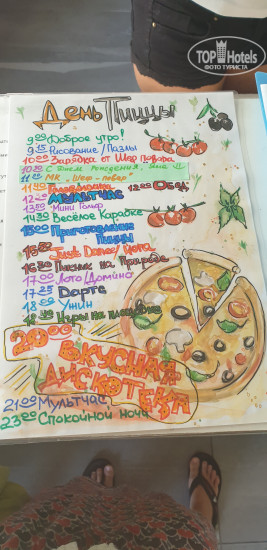 TOP Hotels
ФОТО ТУРИСТА
День Пиццы
9:00 Доброе утро!
9:15 Рисование/Пазлы
10:00 Зарядка от Шеф Повара
10:30 С Днем Рождения,
МК "Шеф-повар"
12:00 Обед
Мультчас
13:00 Мини Гольф
14:30 Весёлое Караоке
15:00 Приготовление Пиццы
16:30 Пикник на Природе
17:00 Лото/Домино
17:25 Дартс
18:00 Ужин
Игры на площадке
20:00 Вкусная Дискотека
21:00 Мультчас
23:00 Спокойной ночи